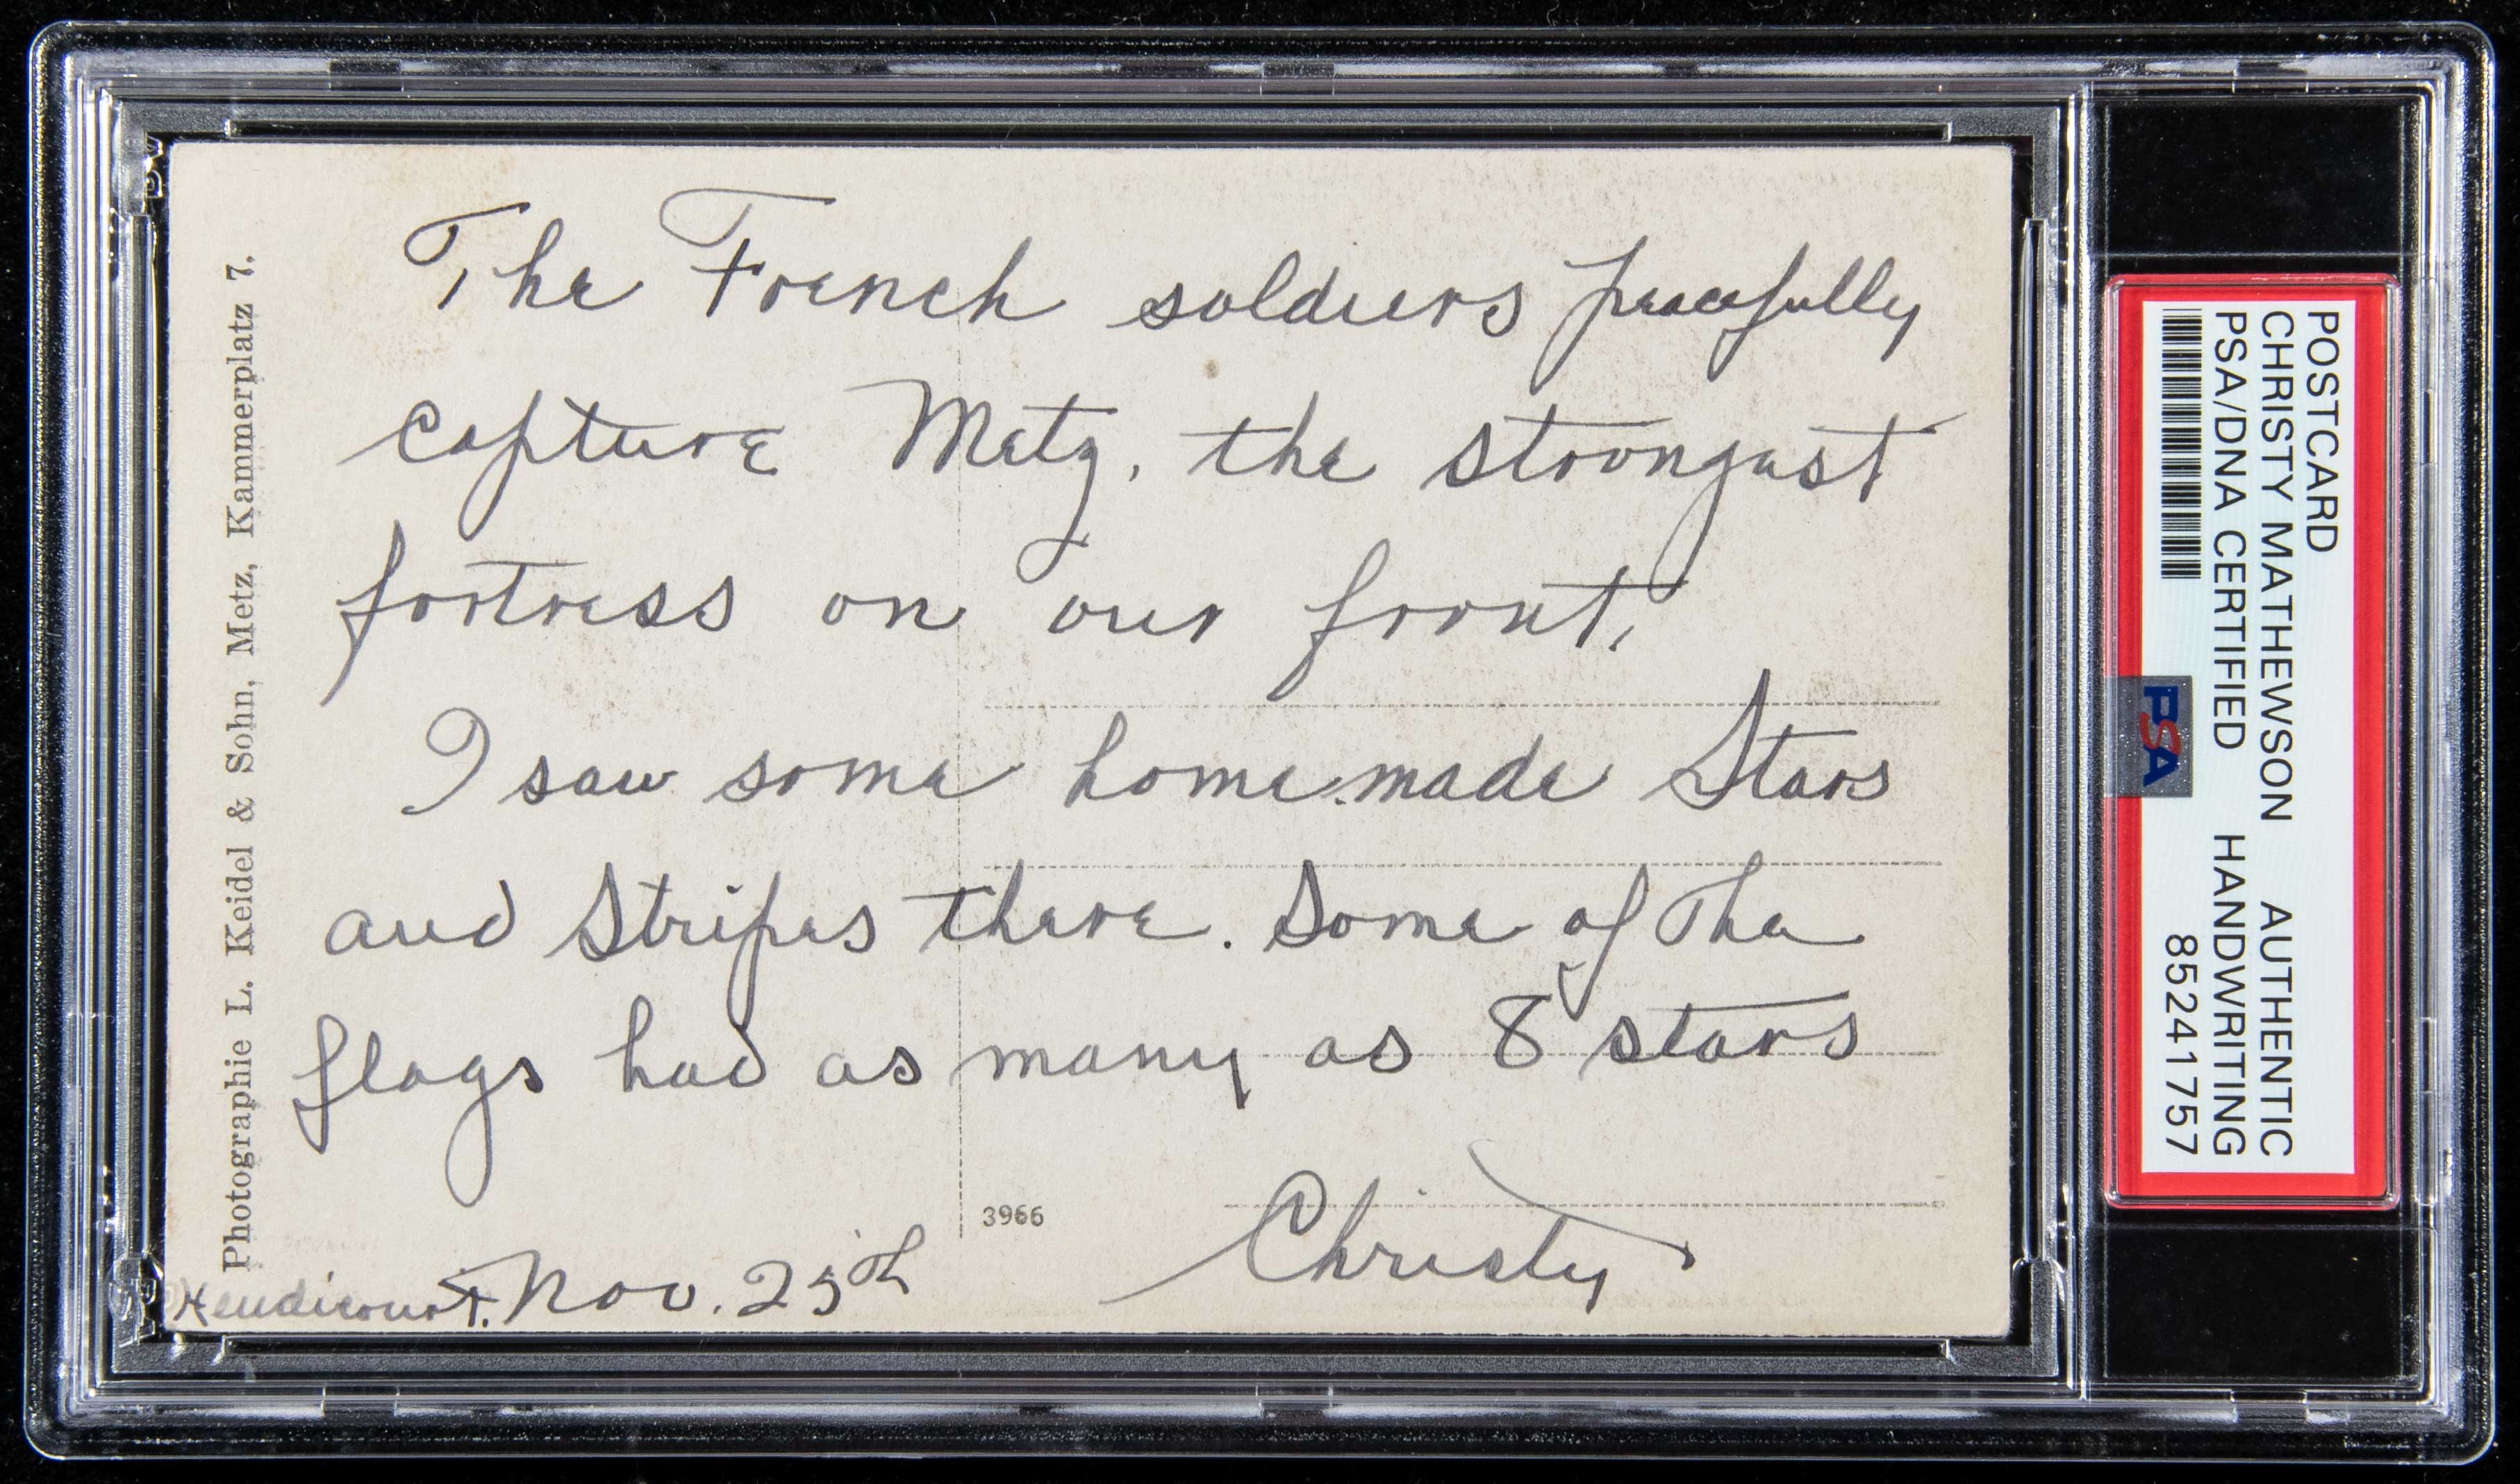 The French soldiers peacefully
capture Metz, the strongest
fortress on our front.
I saw some home-made Stars
and Stripes there. Some of the
flags had as many as 8 stars
Christy
Heudicourt. Nov. 25th
3966
Photographie L. Keidel & Sohn, Metz, Kammerplatz 7.
POSTCARD
CHRISTY MATHEWSON AUTHENTIC
PSA/DNA CERTIFIED HANDWRITING
85241757
PSA